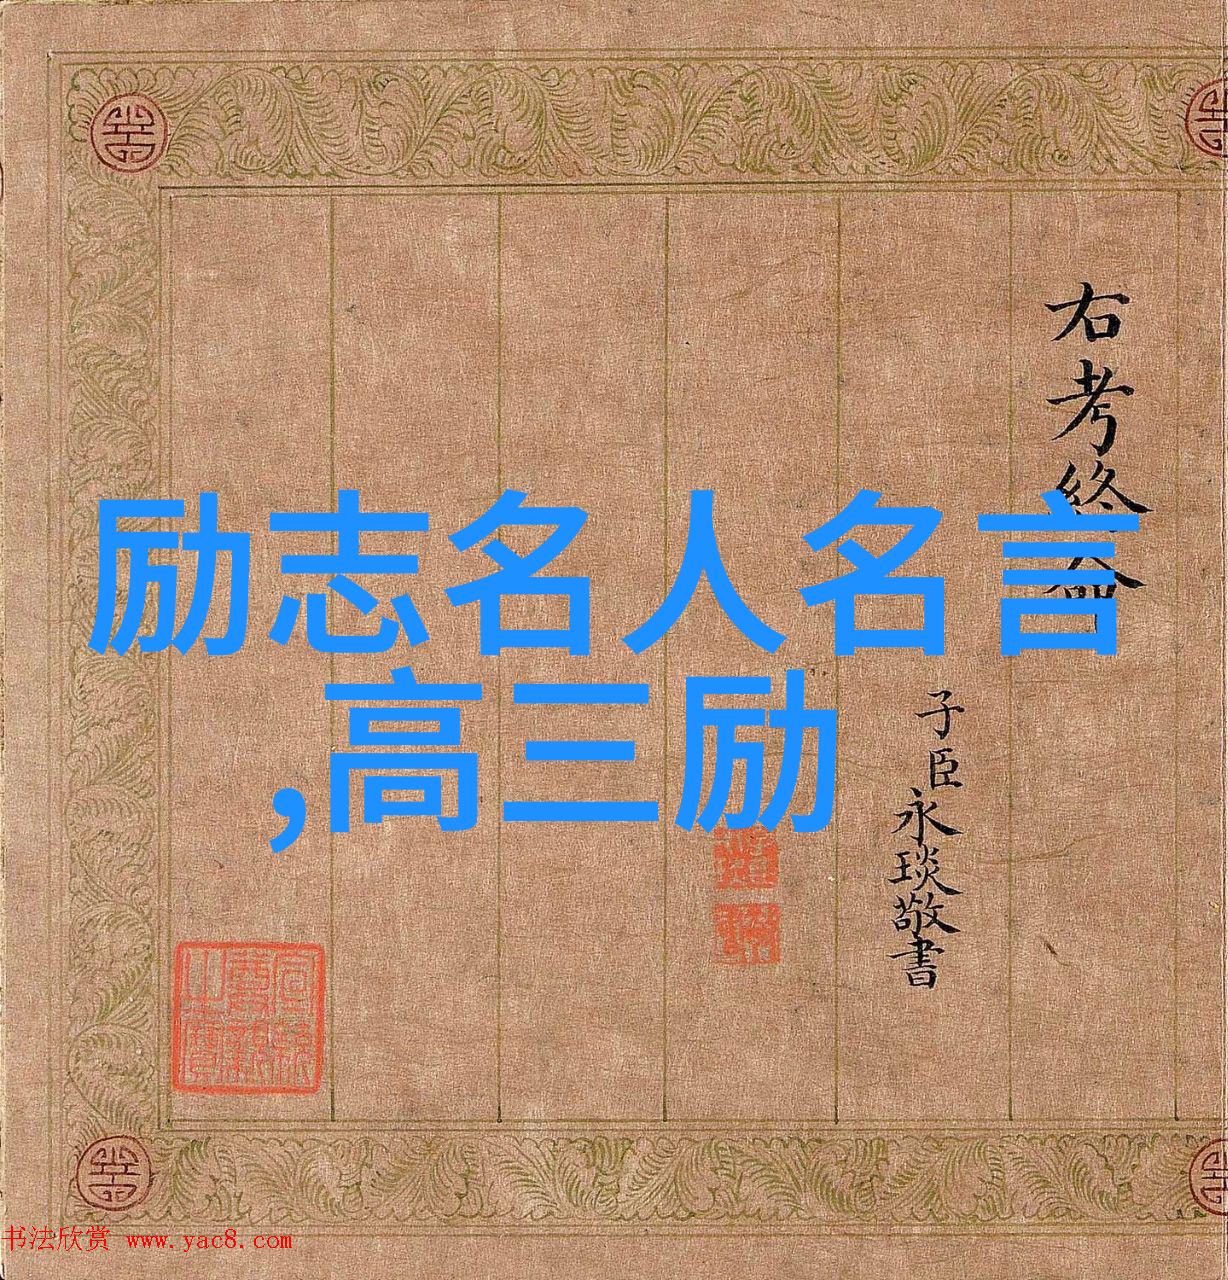 右考終命
子臣永琰敬書
励志名人名言
,高三励
书法欣赏 www.yac8.com